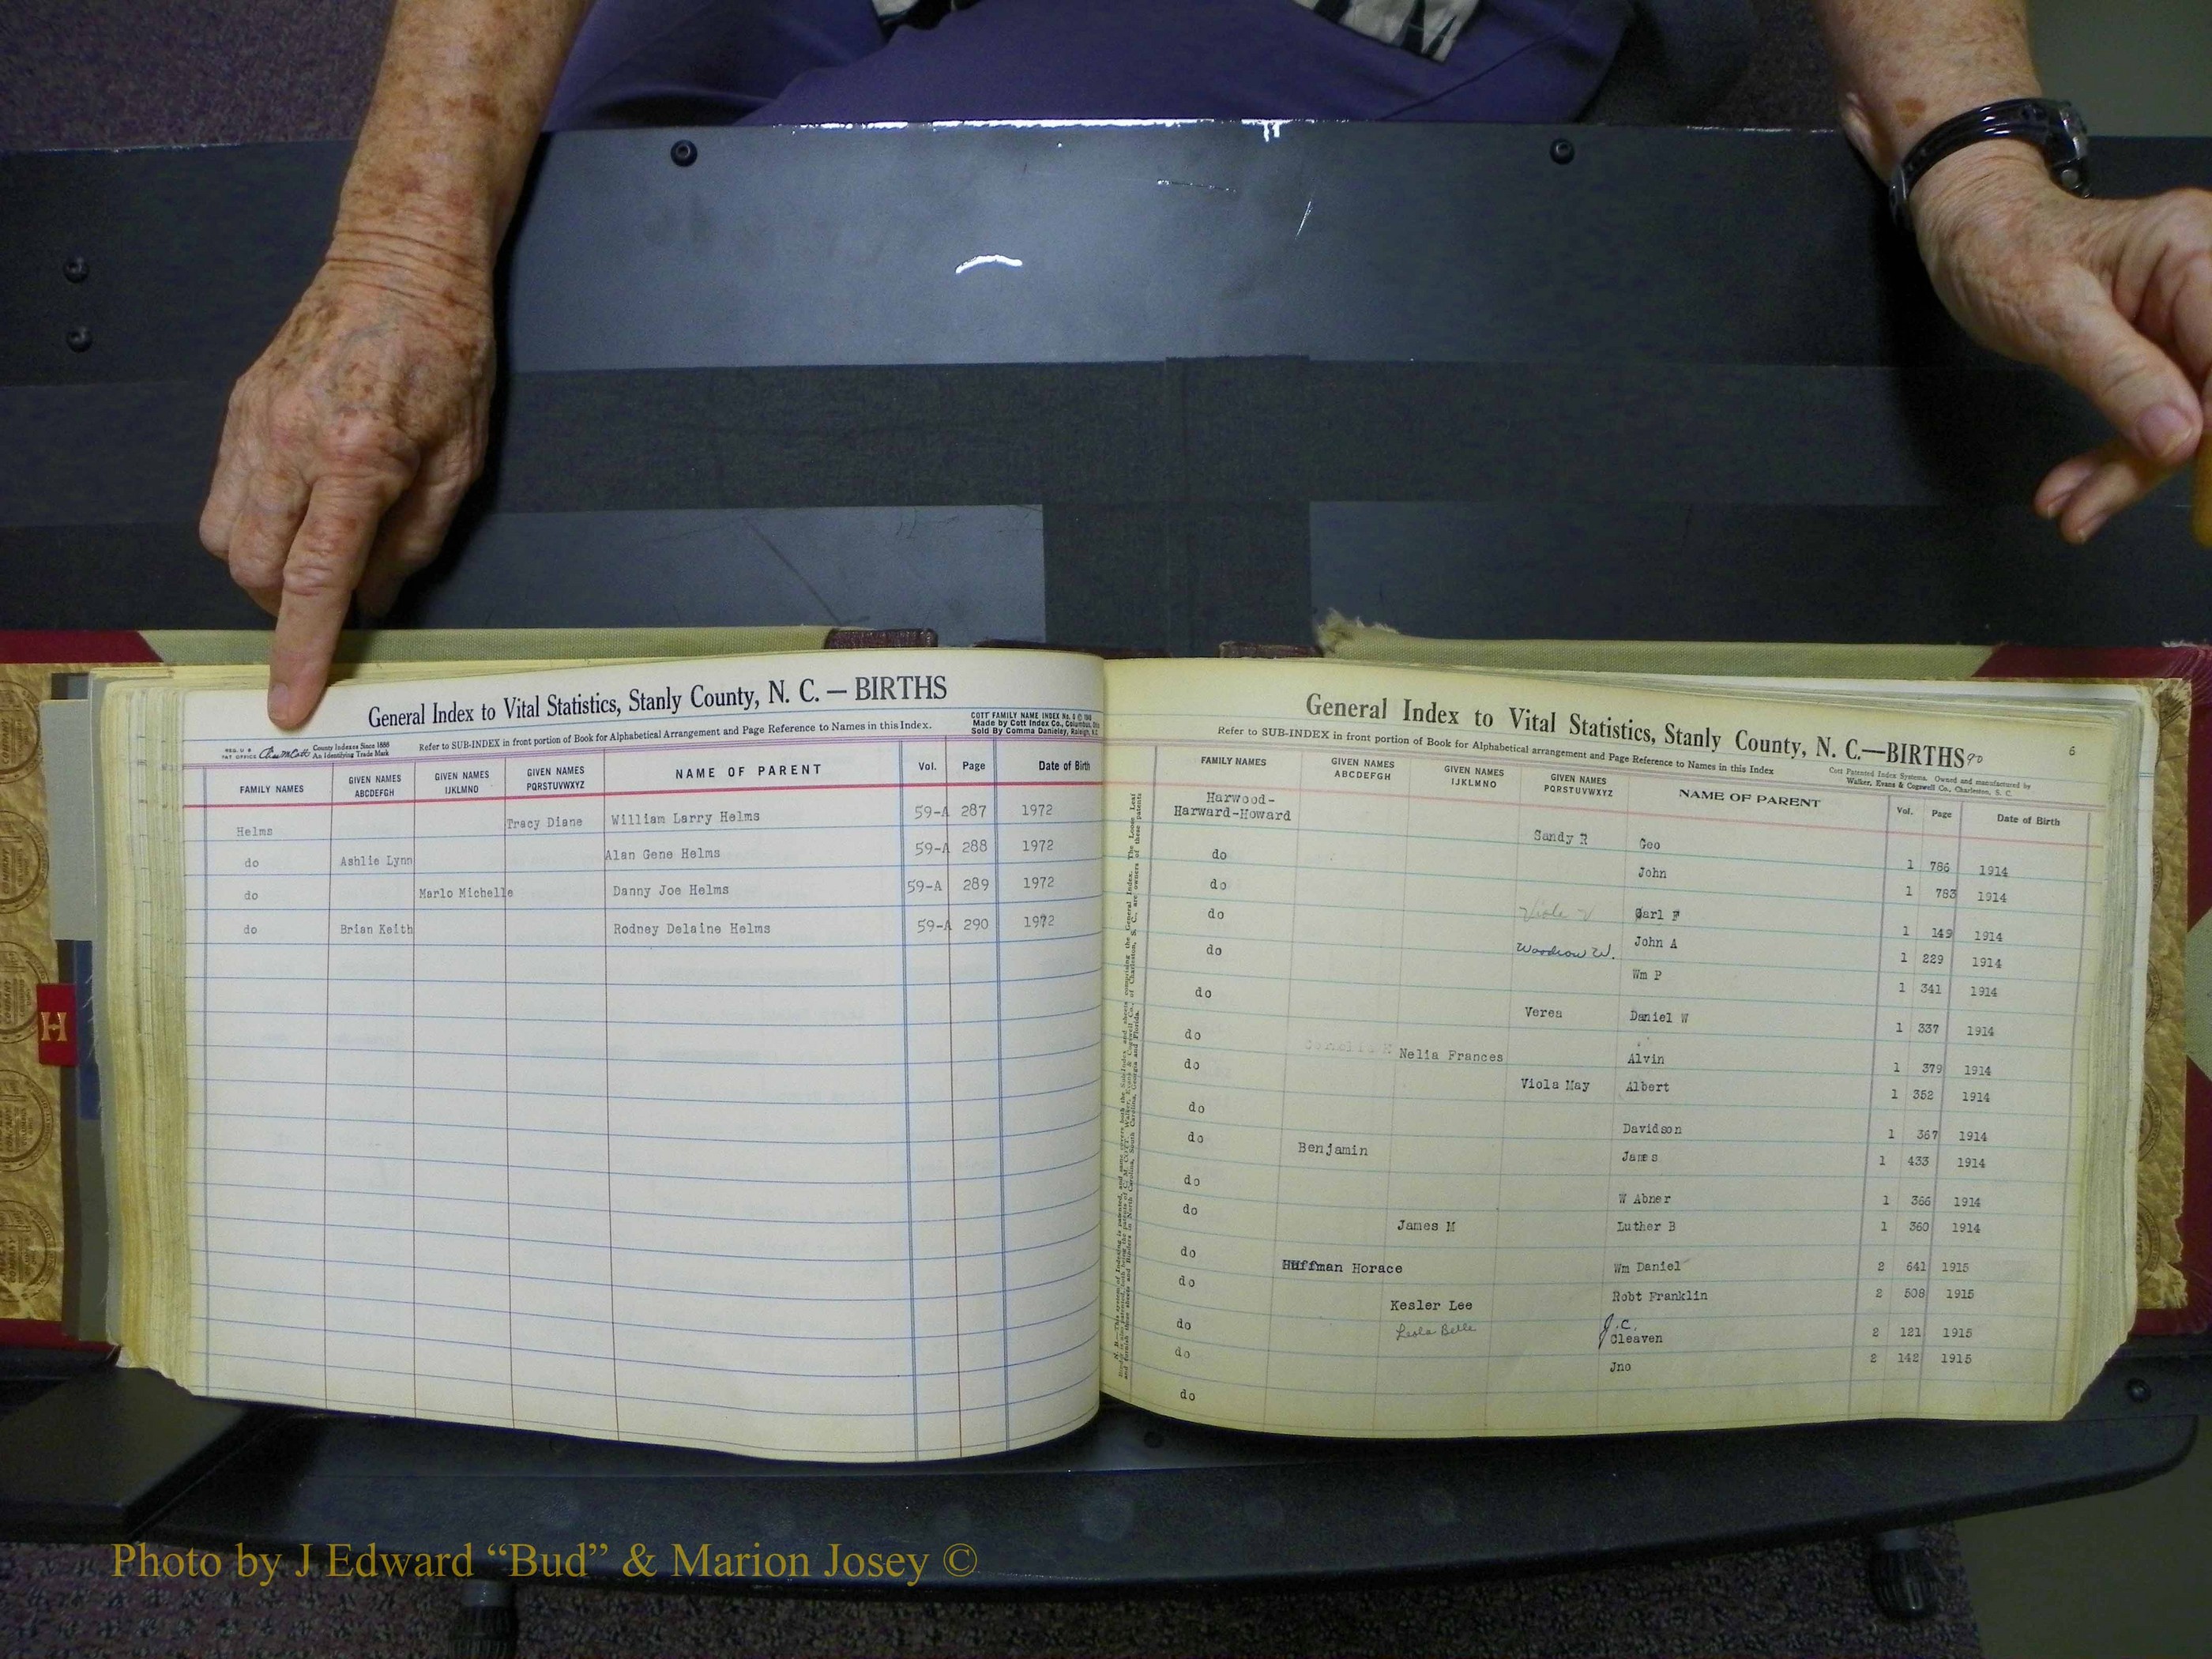 General Index to Vital Statistics, Stanly County, N. C. — BIRTHS
COTT FAMILY NAME INDEX
Made by Cott Index Co., Columbus, Ohio
Sold By Comma Danieley, Raleigh, N.C.
REG. U S PAT OFFICE County Indexes Since 1888 An Identifying Trade Mark
Refer to SUB-INDEX in front portion of Book for Alphabetical Arrangement and Page Reference to Names in this Index.
FAMILY NAMES GIVEN NAMES ABCDEFGH GIVEN NAMES IJKLMNO GIVEN NAMES PQRSTUVWXYZ NAME OF PARENT Vol. Page Date of Birth
Helms Tracy Diane William Larry Helms 59-A 287 1972
do Ashlie Lynn Alan Gene Helms 59-A 288 1972
do Marlo Michelle Danny Joe Helms 59-A 289 1972
do Brian Keith Rodney Delaine Helms 59-A 290 1972
H
General Index to Vital Statistics, Stanly County, N. C.—BIRTHS 90
6
Refer to SUB-INDEX in front portion of Book for Alphabetical arrangement and Page Reference to Names in this Index
Cott Patented Index Systems. Owned and manufactured by
Walker, Evans & Cogswell Co., Charleston, S. C.
FAMILY NAMES GIVEN NAMES ABCDEFGH GIVEN NAMES IJKLMNO GIVEN NAMES PQRSTUVWXYZ NAME OF PARENT Vol. Page Date of Birth
Harwood-
Harward-Howard Sandy R Geo 1 786 1914
do John 1 783 1914
do Viola V Carl F 1 149 1914
do Woodrow W. John A 1 229 1914
do Wm P 1 341 1914
do Verea Daniel W 1 337 1914
do Nelia Frances Alvin 1 379 1914
do Viola May Albert 1 352 1914
do Davidson 1 367 1914
do Benjamin James 1 433 1914
do W Abner 1 366 1914
do James M Luther B 1 360 1914
do Huffman Horace Wm Daniel 2 641 1915
do Kesler Lee Robt Franklin 2 508 1915
do Leola Belle J.C. Cleaven 2 121 1915
do Jno 2 142 1915
do
Photo by J Edward “Bud” & Marion Josey ©